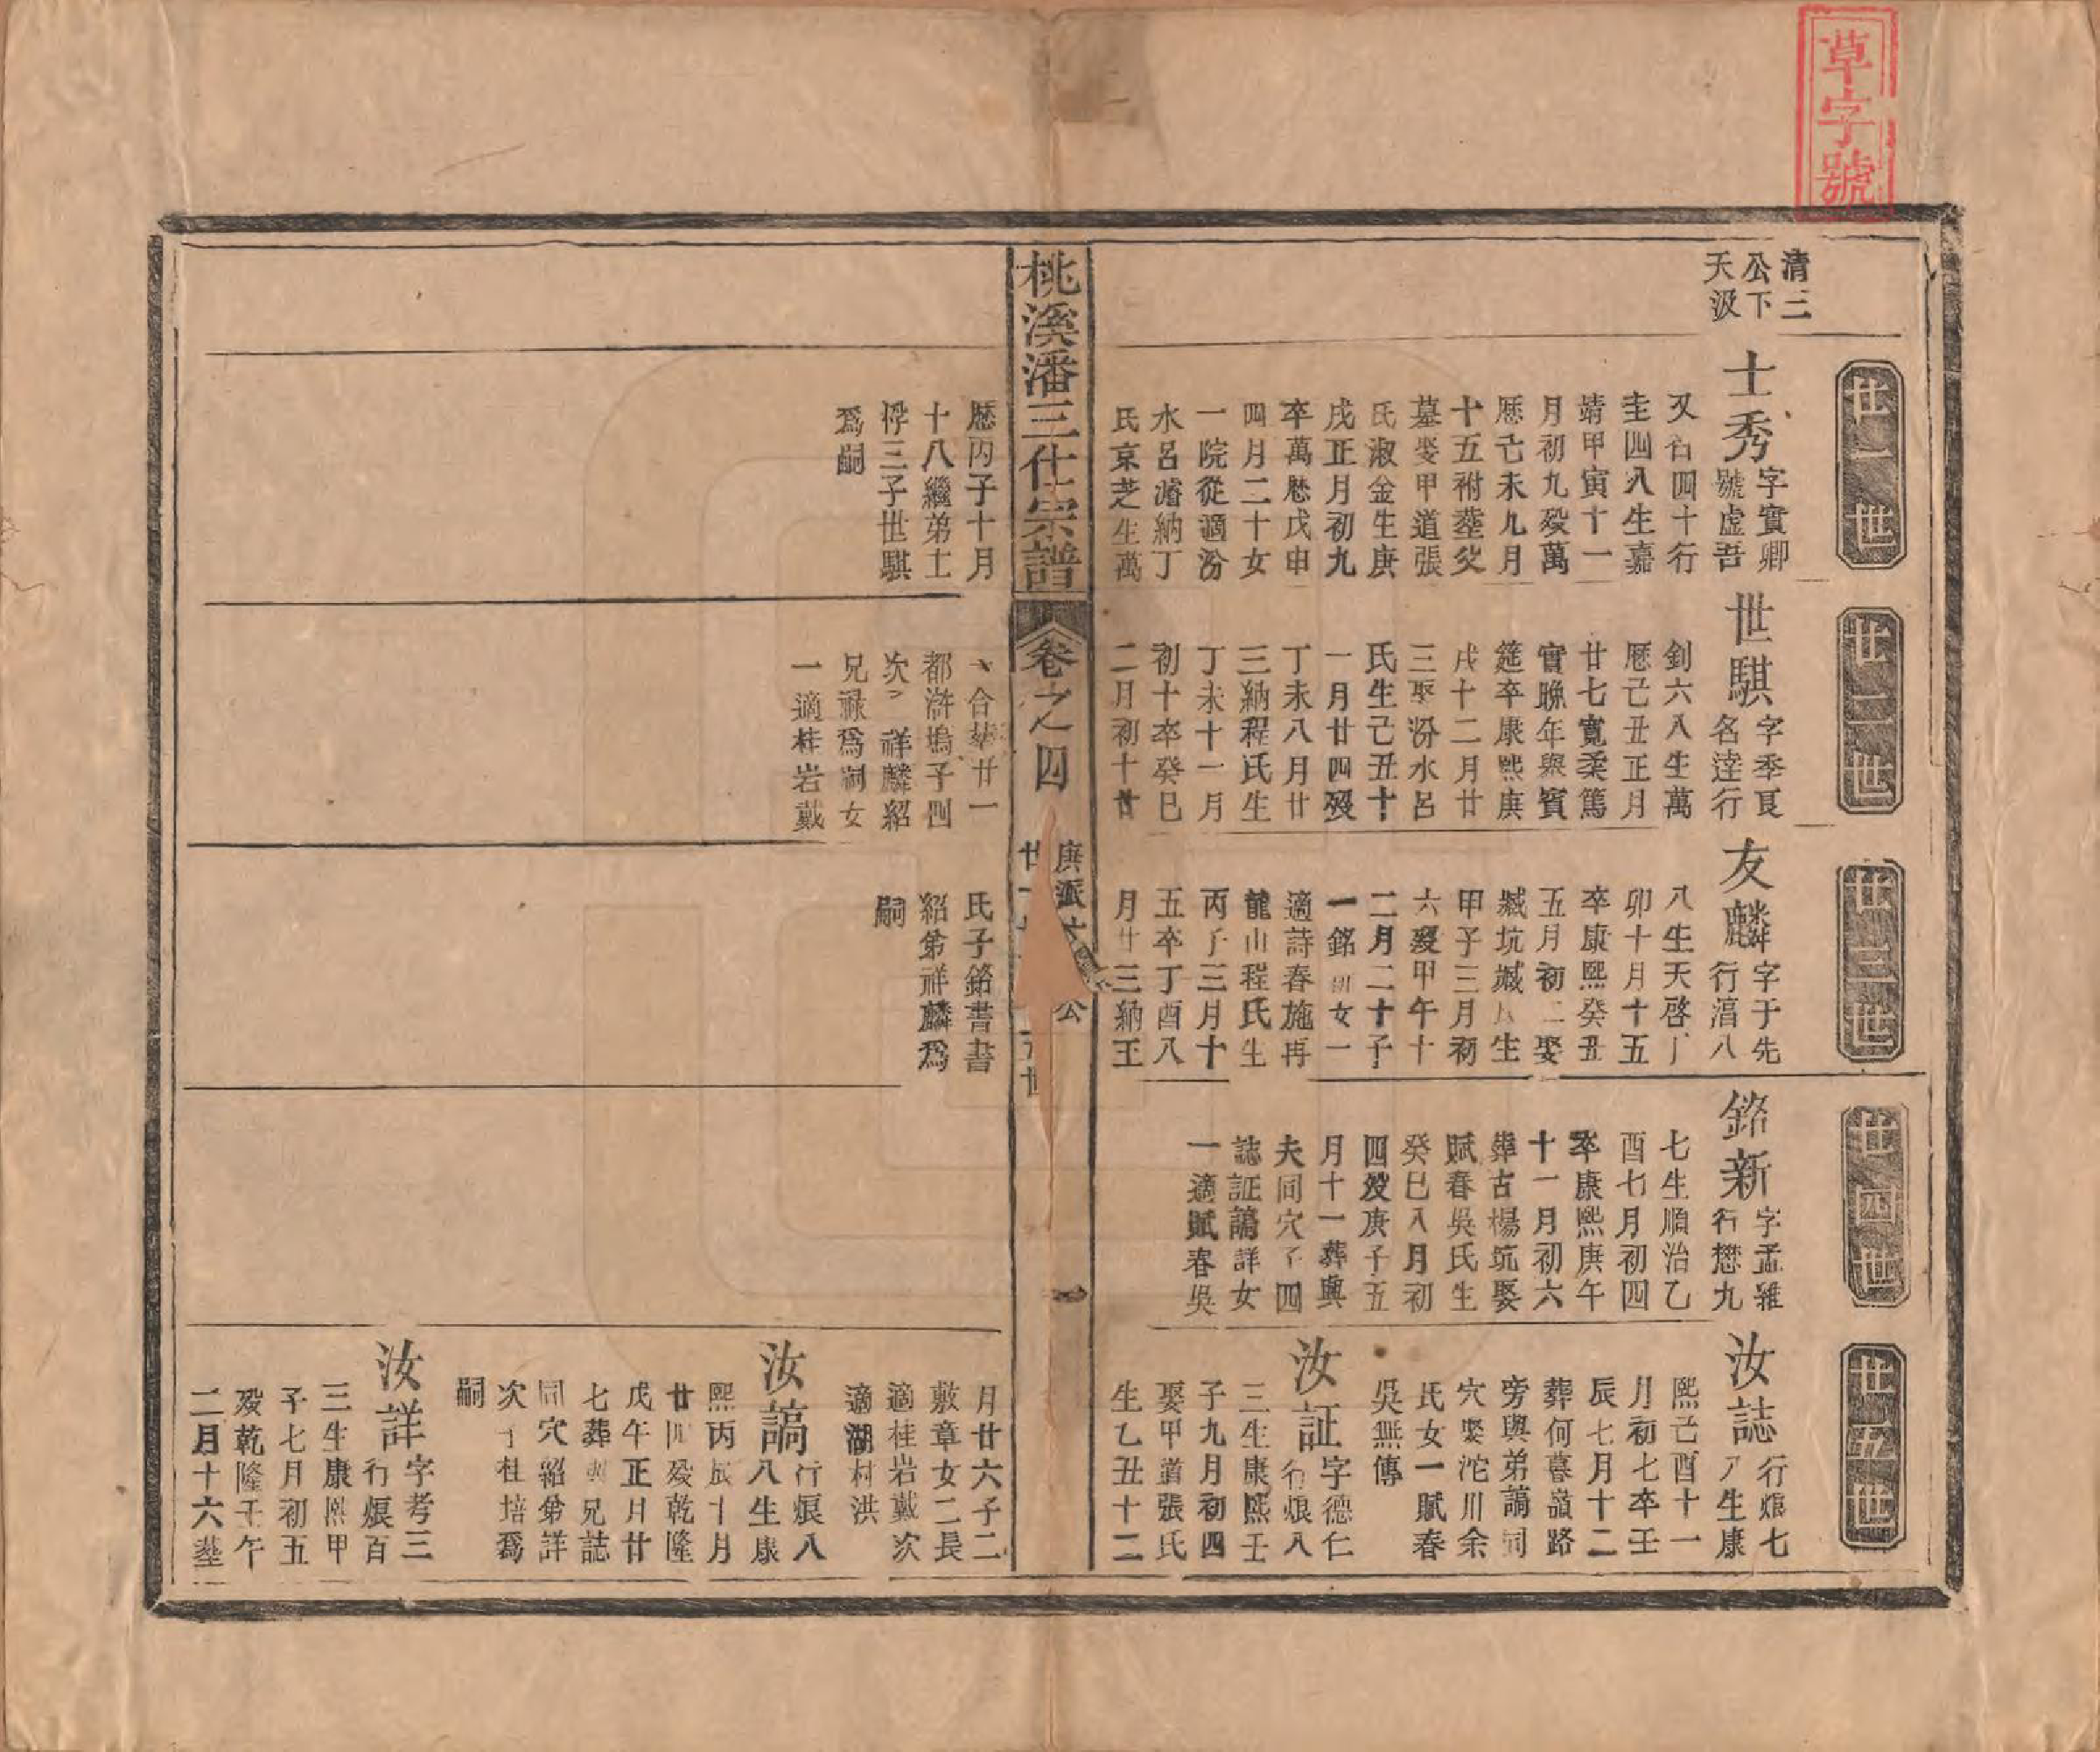 草字號
清三
公下
天汲
廿一世
士秀
字實卿
號虛吾
又名四十行
圭四八生嘉
靖甲寅十一
月初九歿萬
歷己未九月
十五祔塟父
墓娶甲道張
氏淑金生庚
戌正月初九
卒萬歷戊申
四月二十女
一院從適汾
水呂濬納丁
氏京芝生萬
歷丙子十月
十八繼弟士
桴三子世騏
爲嗣
廿二世
世騏
字季良
名達行
釗六八生萬
歷己丑正月
廿七寬柔篤
實晚年與賓
筵卒康熙庚
戌十二月廿
三娶汾水呂
氏生己丑十
一月廿四歿
丁未八月廿
三納程氏生
丁未十一月
初十卒癸巳
二月初十廿
合塟廿一
都滸塢子四
次祥麟紹
兄祿爲嗣女
一適桂岩戴
廿三世
友麟
字于先
行滈八
八生天啓丁
卯十月十五
卒康熙癸丑
五月初二娶
臧坑臧氏生
甲子三月初
六歿甲午十
二月二十子
一銘新女一
適詩春施再
龍山程氏生
丙子三月十
五卒丁酉八
月廿三納王
氏子銘書書
紹弟祥麟爲
嗣
廿四世
銘新
字孟雅
行懋九
七生順治乙
酉七月初四
卒康熙庚午
十一月初六
葬古楊坑娶
賦春吳氏生
癸巳八月初
四歿庚子五
月十一葬與
夫同穴子四
誌証謞詳女
一適賦春吳
廿五世
汝誌
行烺七
八生康
熙己酉十一
月初七卒壬
辰七月十二
葬何暮嶺路
旁與弟謞同
穴娶沱川余
氏女一賦春
吳無傳
汝証
字德仁
行烺八
三生康熙壬
子九月初四
娶甲道張氏
生乙丑十二
月廿六子二
敷章女二長
適桂岩戴次
適湖村洪
汝謞
行烺八
八生康
熙丙辰十月
廿四歿乾隆
戊午正月廿
七葬與兄誌
同穴紹弟詳
次子柱培爲
嗣
汝詳
字考三
行烺百
三生康熙甲
子七月初五
歿乾隆壬午
二月十六塟
桃溪潘三仕宗譜
卷之四